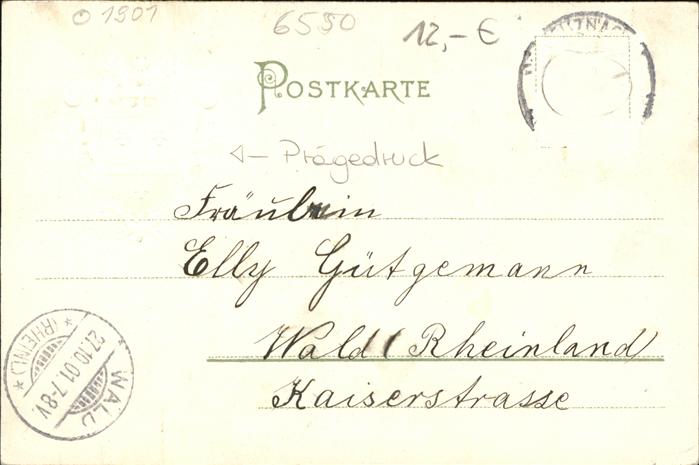 1901
6550
12,- €
POSTKARTE
Prägedruck
Fräulein
Elly Gütgemann
Wald (Rheinland)
Kaiserstrasse
WALD
27.10.01.7-8V.
*(RHEINL.)*